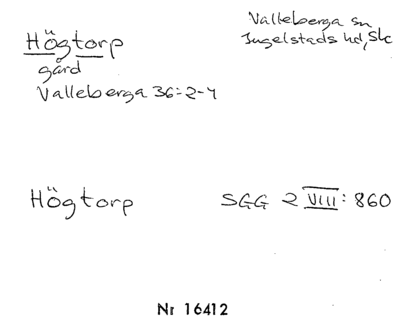 Högtorp
gård
Valleberga 36:2-4
Valleberga sn
Ingelstads hd, Skc
Högtorp
SGG 2 VIII: 860
Nr 16412